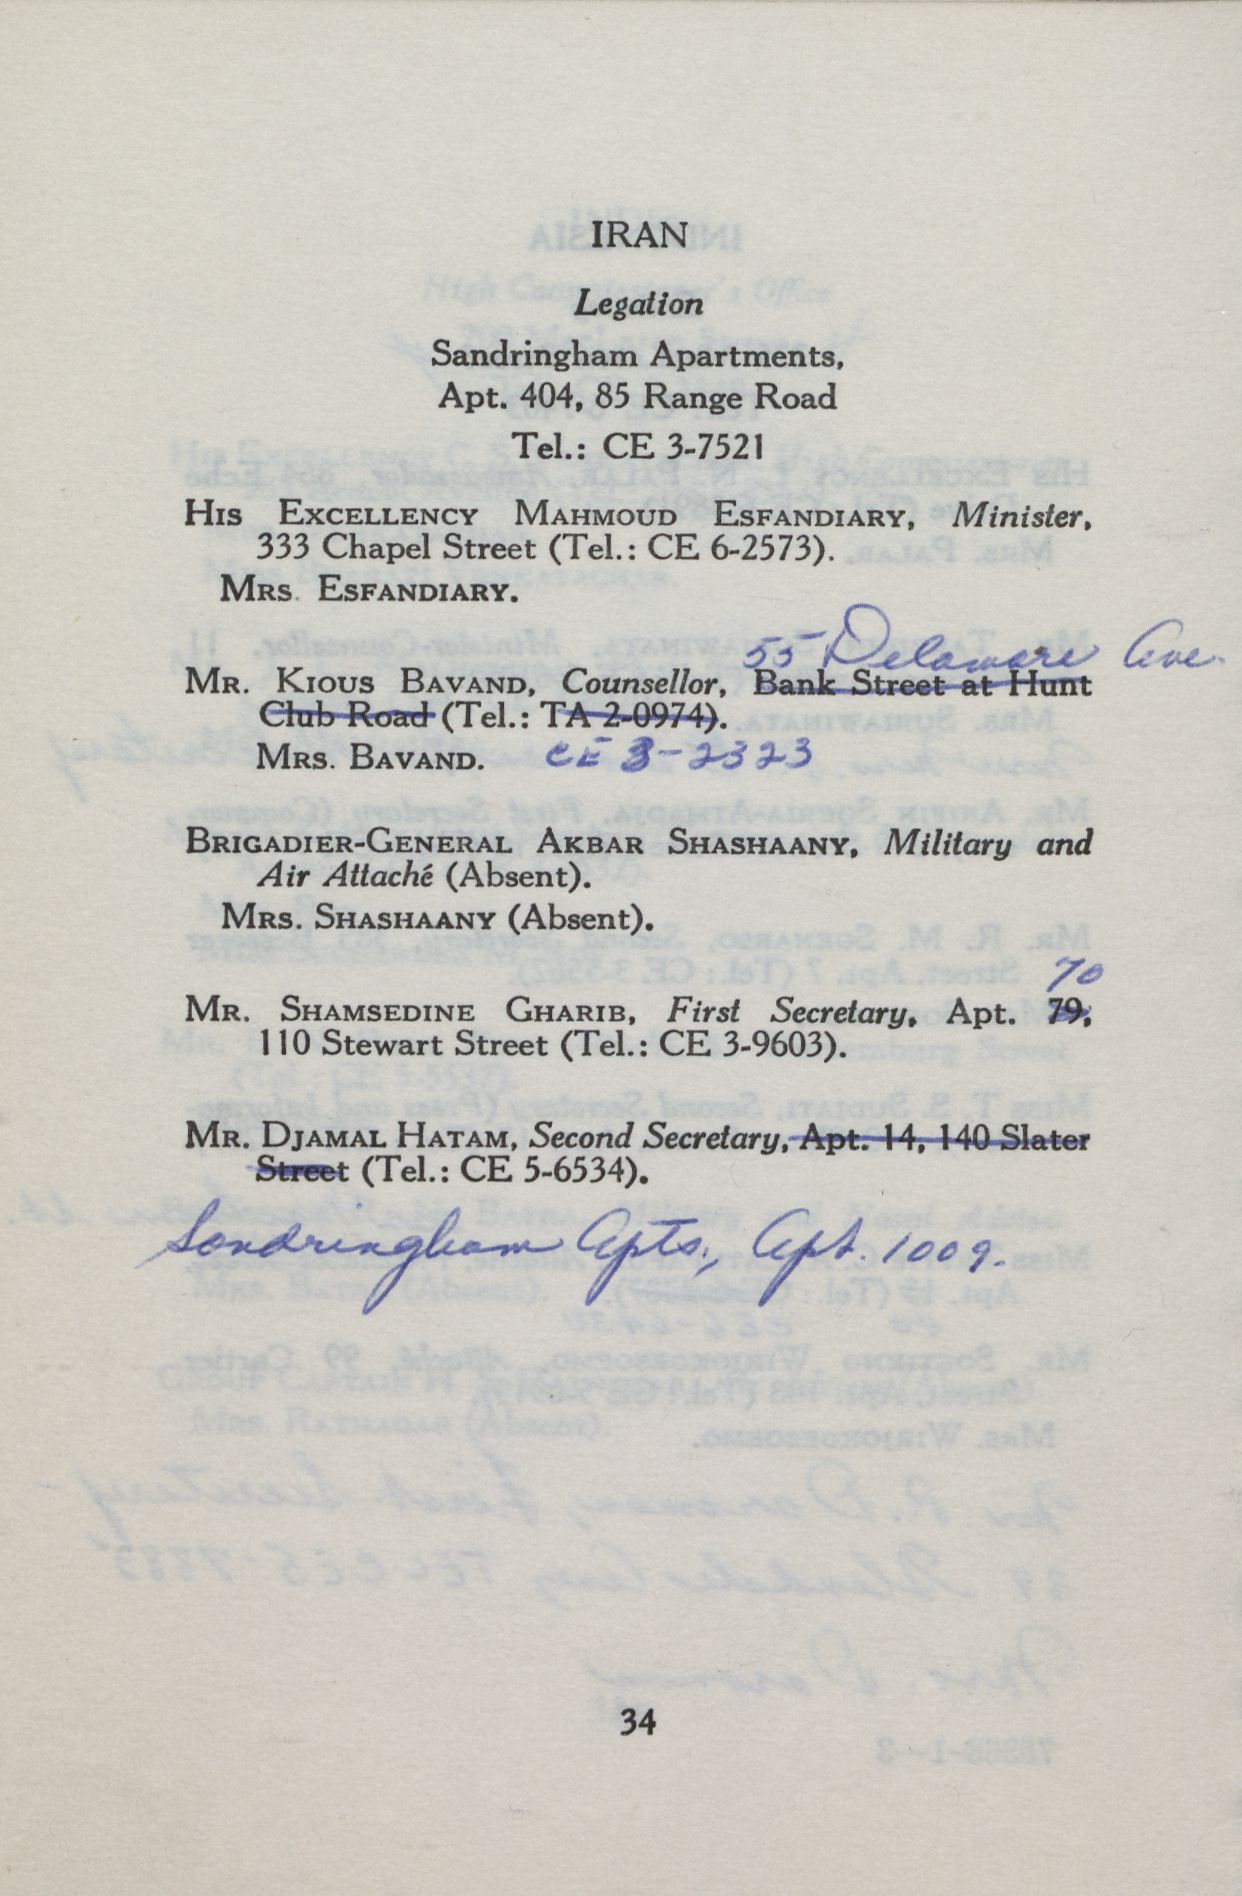 IRAN
Legation
Sandringham Apartments,
Apt. 404, 85 Range Road
Tel.: CE 3-7521
His Excellency Mahmoud Esfandiary, Minister,
333 Chapel Street (Tel.: CE 6-2573).
Mrs. Esfandiary.
55 Delaware Ave.
Mr. Kious Bavand, Counsellor, Bank Street at Hunt
Club Road (Tel.: TA 2-0974).
Mrs. Bavand. CE 3-2323
Brigadier-General Akbar Shashaany, Military and
Air Attaché (Absent).
Mrs. Shashaany (Absent).
70
Mr. Shamsedine Gharib, First Secretary, Apt. 79,
110 Stewart Street (Tel.: CE 3-9603).
Mr. Djamal Hatam, Second Secretary, Apt. 14, 140 Slater
Street (Tel.: CE 5-6534).
Sandringham Apts., Apt. 1009.
34